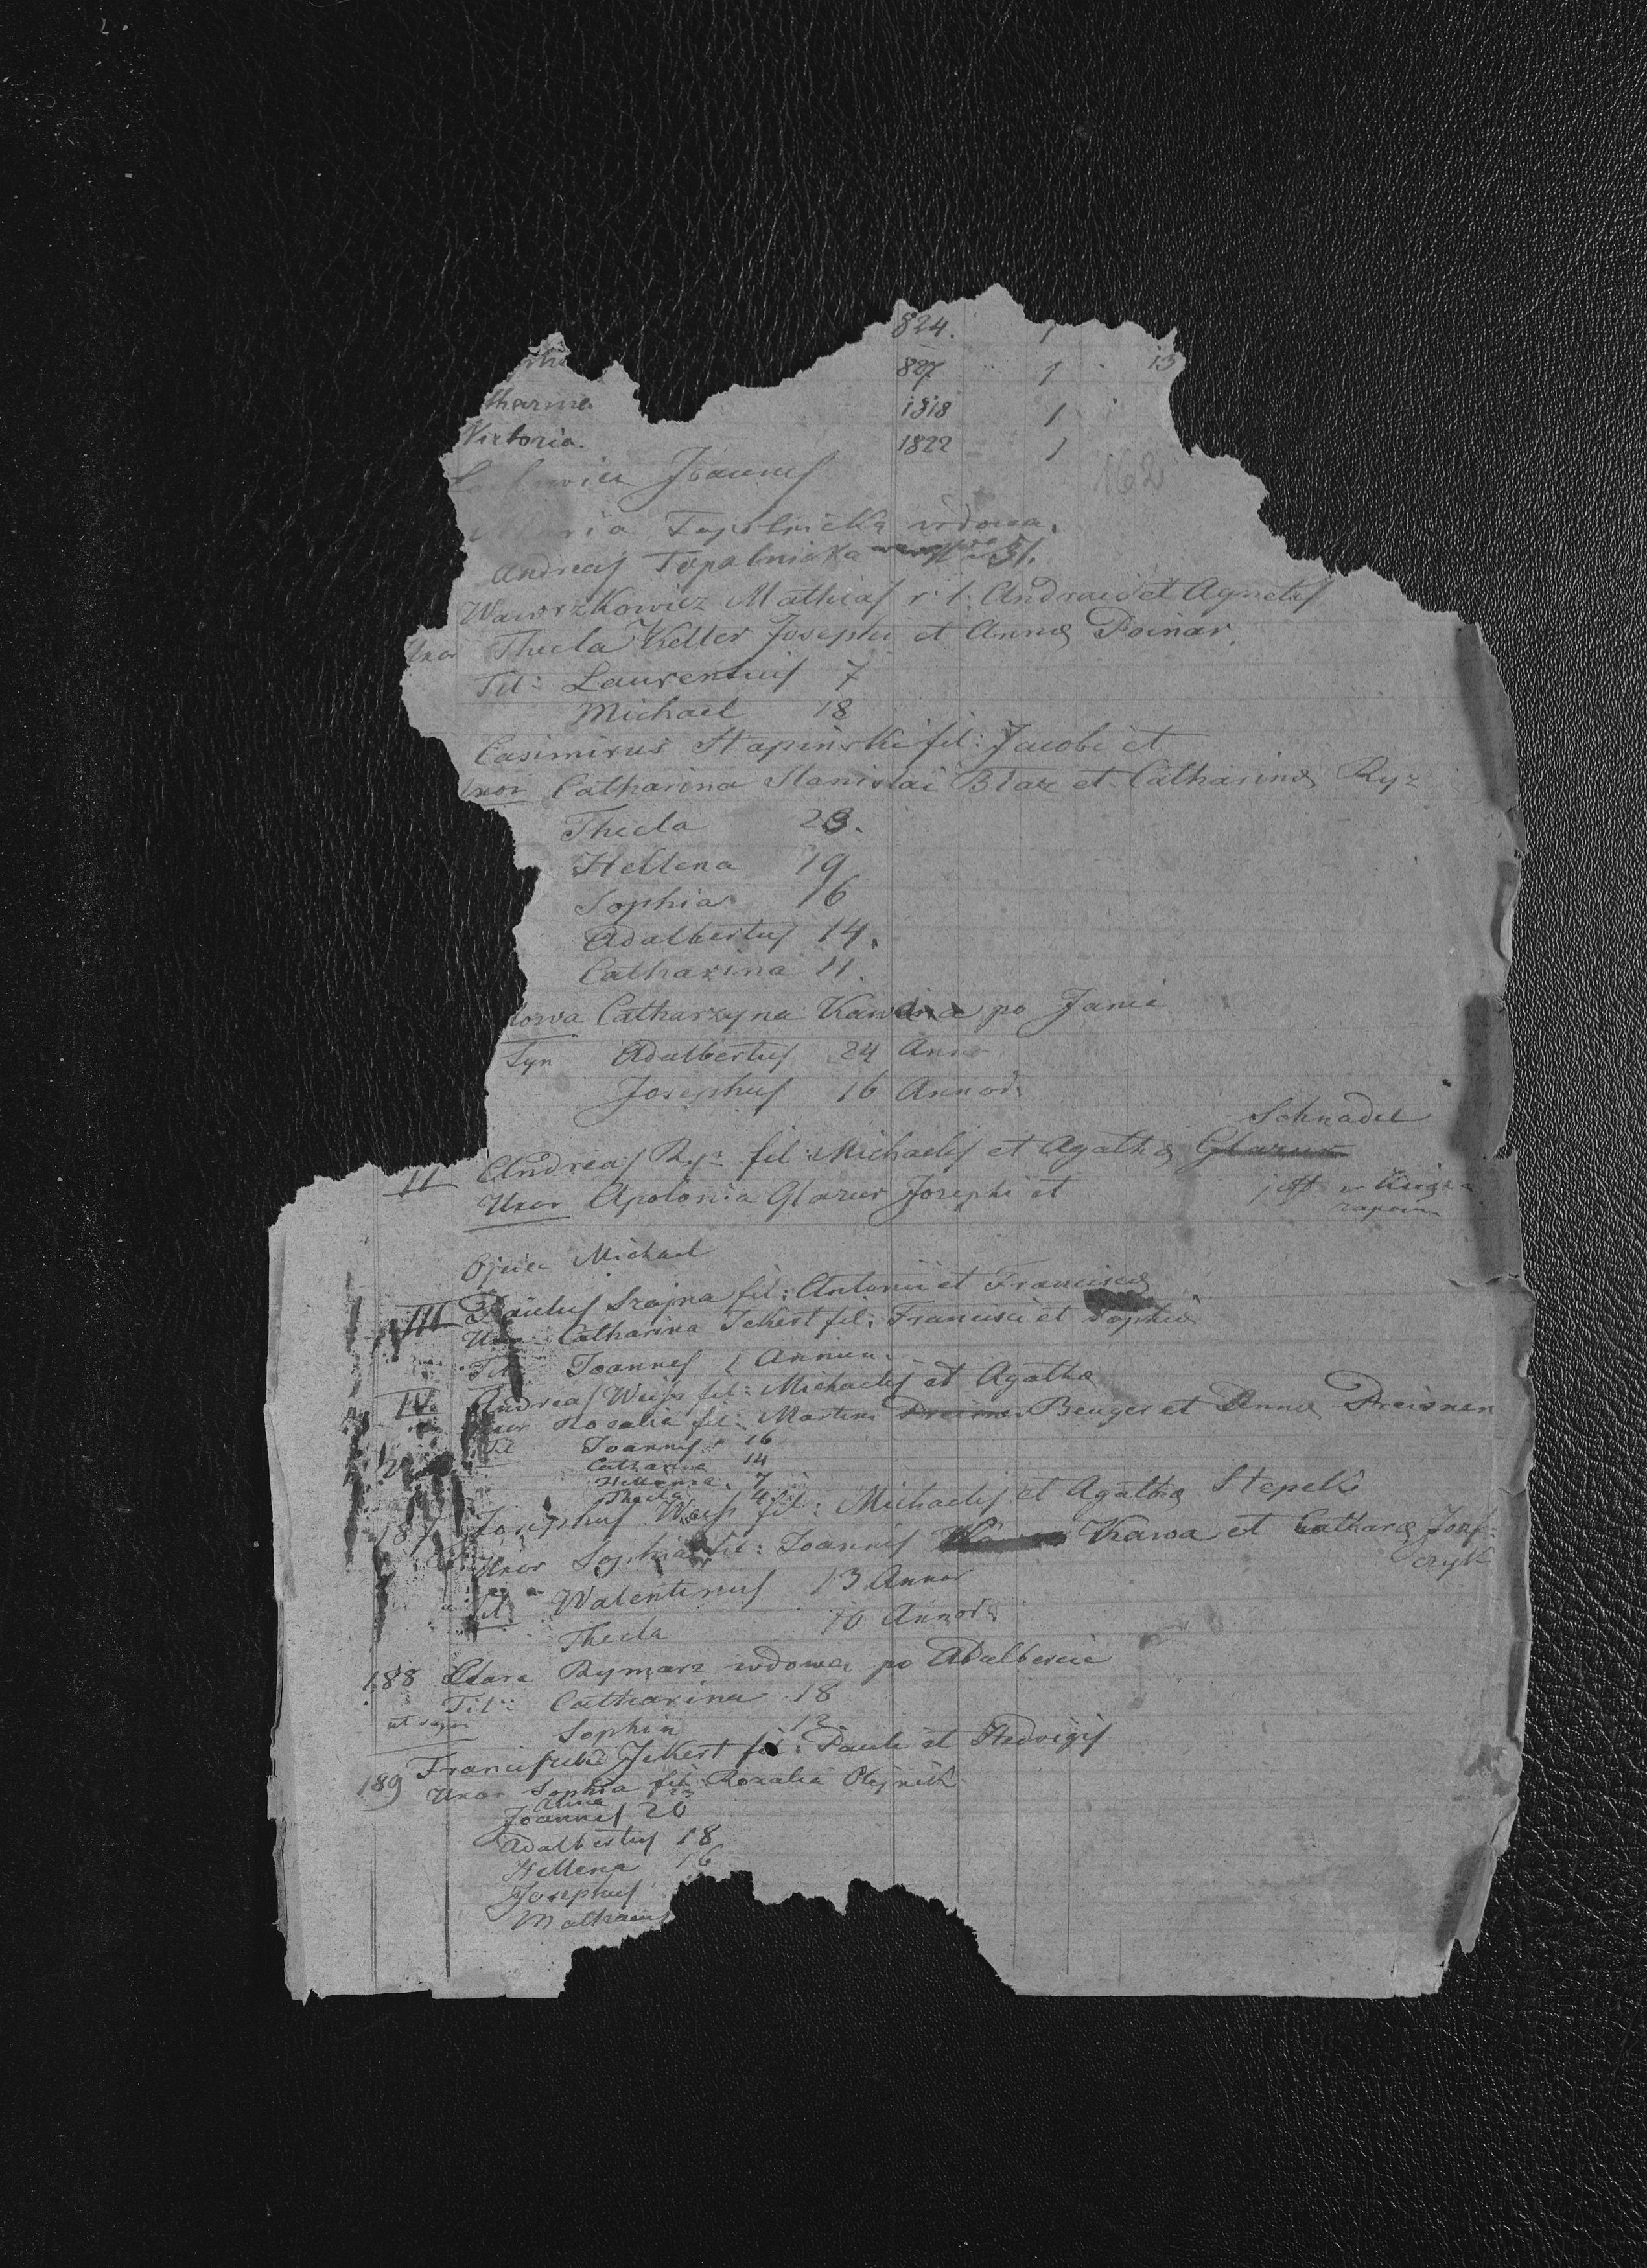 824. 1
827 1 13
tharina 1818 1
Victoria. 1822 1
Joannes
162
Topolnicka wdowa.
Andreas Topolnicka 51.
Wawrzkowicz Mathias r: l: Andraeo et Agnetis
Uxor Thecla Keller Josephi et Annae Poinar.
Fil: Laurentius 7
Michael 18
Casimirus Stapinski fil: Jacobi et
Uxor Catharina Stanislai Blaz et Catharinae Ryz
Thecla 23.
Hellena 19
Sophia 16
Adalbertus 14.
Catharina 11.
dowa Catharzyna Kawina po Janie
Syn Adalbertus 24 Anno
Josephus 16 Annor
Schnadel
II Andreas Ryz fil: Michaelis et Agathae Glazur
Uxor Apolonia Glazur Josephi et jest w
Ojciec Michael
III Paulus Szajna fil: Antonii et Franciscae
Uxor Catharina Jekert fil: Francisci et Sophiae
Fil Joannes 1 Annum.
IV. Andreas Weiss fil: Michaelis et Agatha
Uxor Rosalia fil: Martini Preisner Benger et Annae Preisner
Fil Joannes 16
Catharina 14
Hellena 7
Thecla 4
187 Josephus Weiss fil: Michaelis et Agathae Stepek
Uxor Sophia fil: Joannis Kawa et Catharae Josef=
czyk
Fil Walentinus 13 Annor
Thecla 10 Annor
188 Clara Rymarz wdowa po Adalbercie
Fil: Catharina 18
ut supr Sophia 12
189 Franciscus Jekert fil: Pauli et Hedvigis
Uxor Sophia fil: Rozalia Olejnik
Joannes 20
Adalbertus 18
Hellena 16
Josephus
Mathaeus